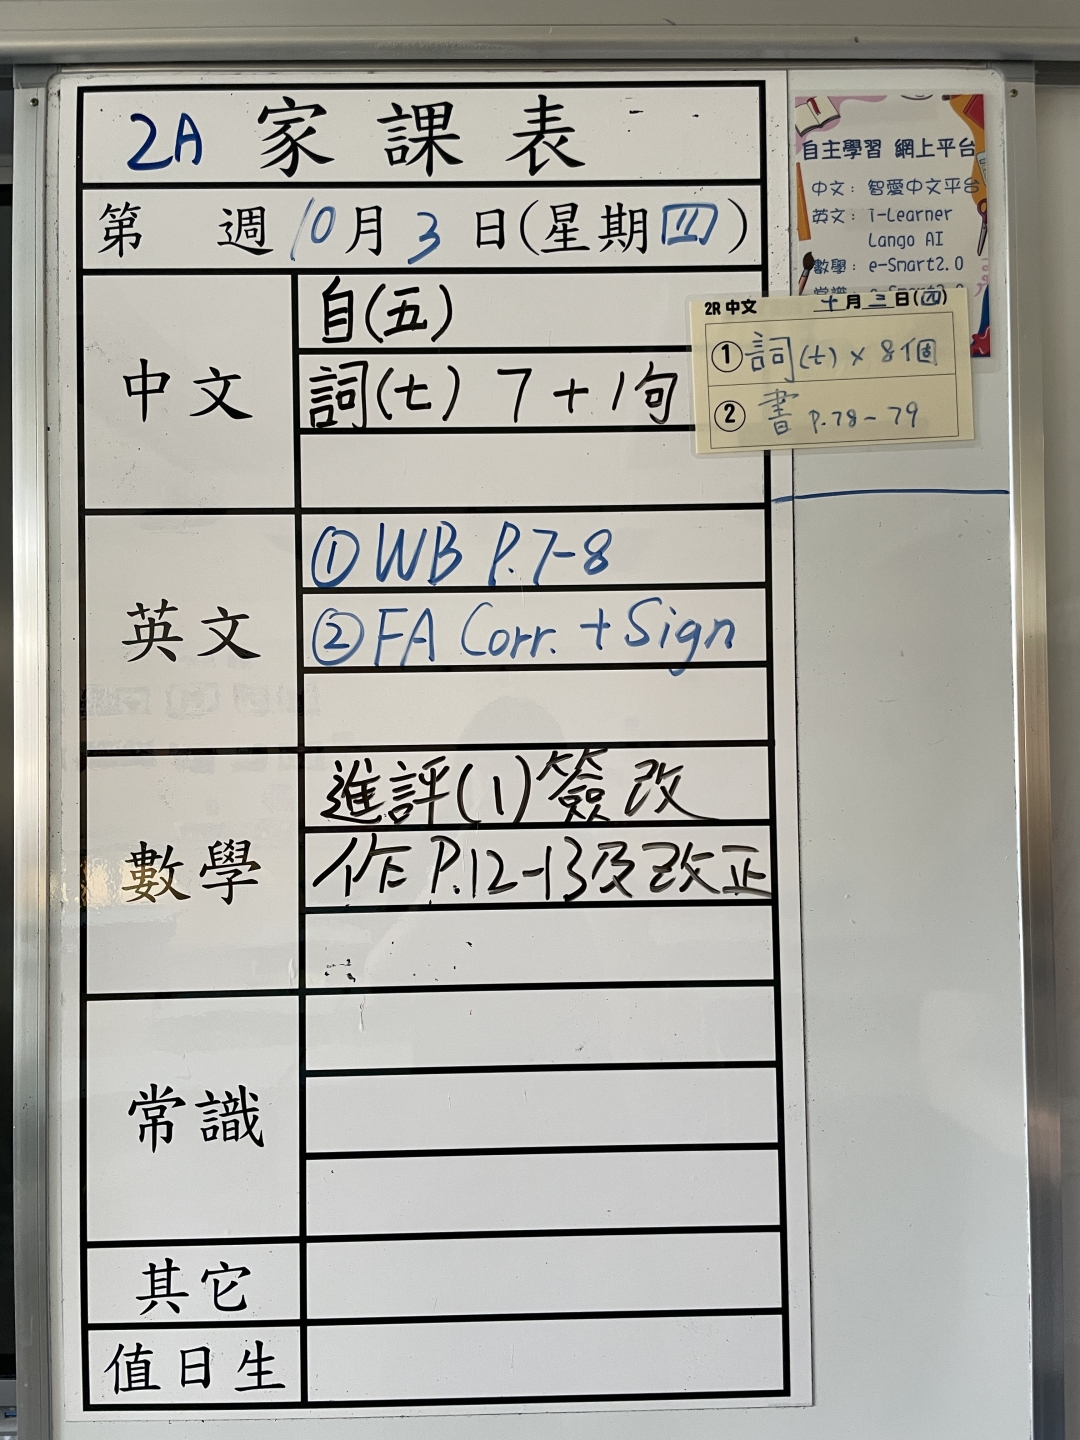 2A 家課表
第 週 10月 3 日(星期四)
中文
自(五)
詞(七) 7 + 1句
英文
① WB P.7-8
② FA Corr. + Sign
數學
進評(1)簽改
作 P.12-13及改正
常識
其它
值日生
自主學習 網上平台
中文: 智愛中文平台
英文: i-Learner
Lango AI
數學: e-Smart2.0
2R 中文 十月三日(四)
① 詞(七) x 8個
② 書 P.78-79